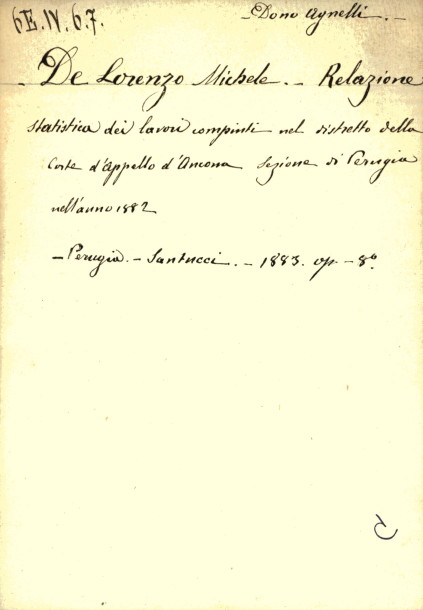 6E.IV.6.7.
Dono Agnelli. -
De Lorenzo Michele. - Relazione
statistica dei lavori compiuti nel distretto della
Corte d'Appello d'Ancona Sezione di Perugia
nell'anno 1882
- Perugia. - Santucci. - 1883. op. - 8º.